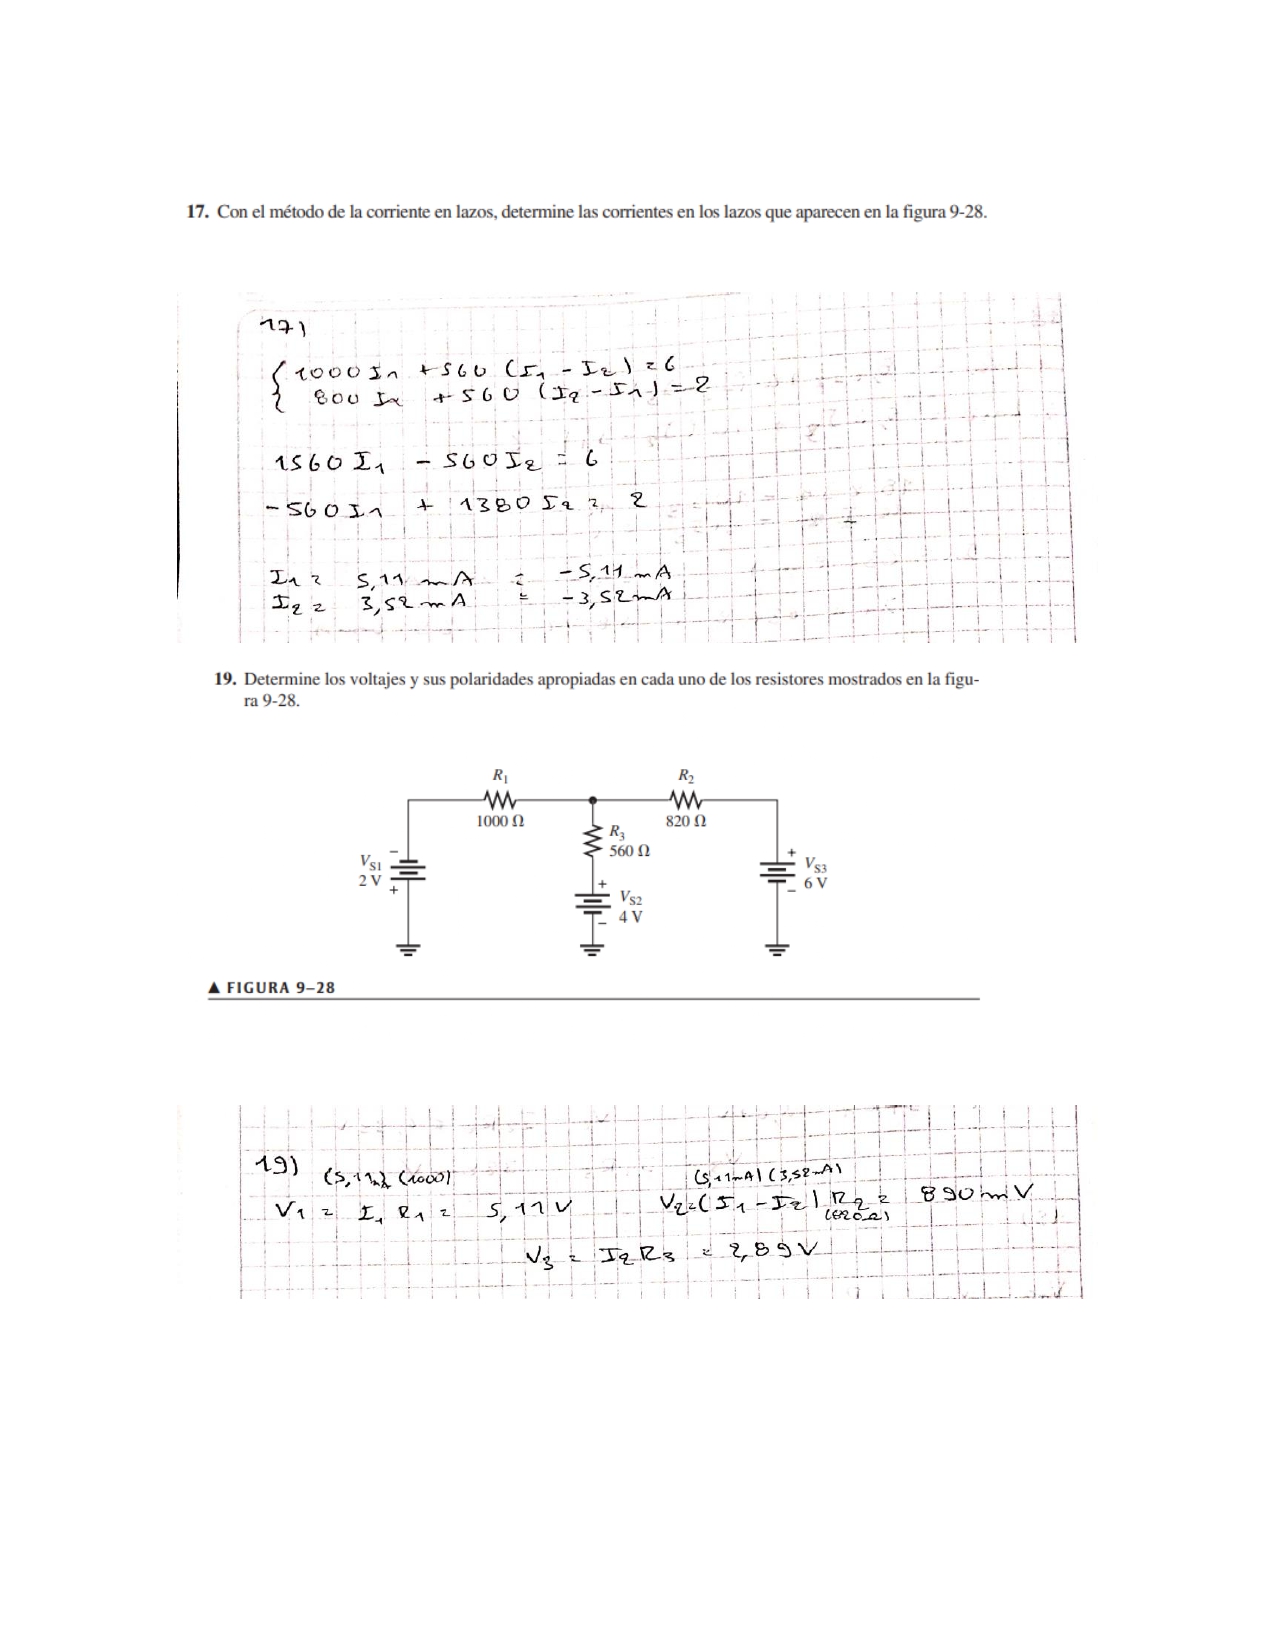 17. Con el método de la corriente en lazos, determine las corrientes en los lazos que aparecen en la figura 9-28.
17)
1000 I1 + 560 (I1 - I2) = 6
800 I2 + 560 (I2 - I1) = 2
1560 I1 - 560 I2 = 6
-560 I1 + 1380 I2 = 2
I1 = 5,11 mA = -5,11 mA
I2 = 3,52 mA = -3,52 mA
19. Determine los voltajes y sus polaridades apropiadas en cada uno de los resistores mostrados en la figu-
ra 9-28.
R1 R2
1000 Ω 820 Ω
R3
560 Ω
VS1
2 V
- +
+ -
VS2
4 V
+ -
VS3
6 V
▲ FIGURA 9–28
19)
(5,11mA) (1000) (5,11mA) (3,52mA)
V1 = I1 R1 = 5,11 V V2 = (I1 - I2) R2 = 890 mV
(820Ω)
V3 = I2 R3 = 2,89 V